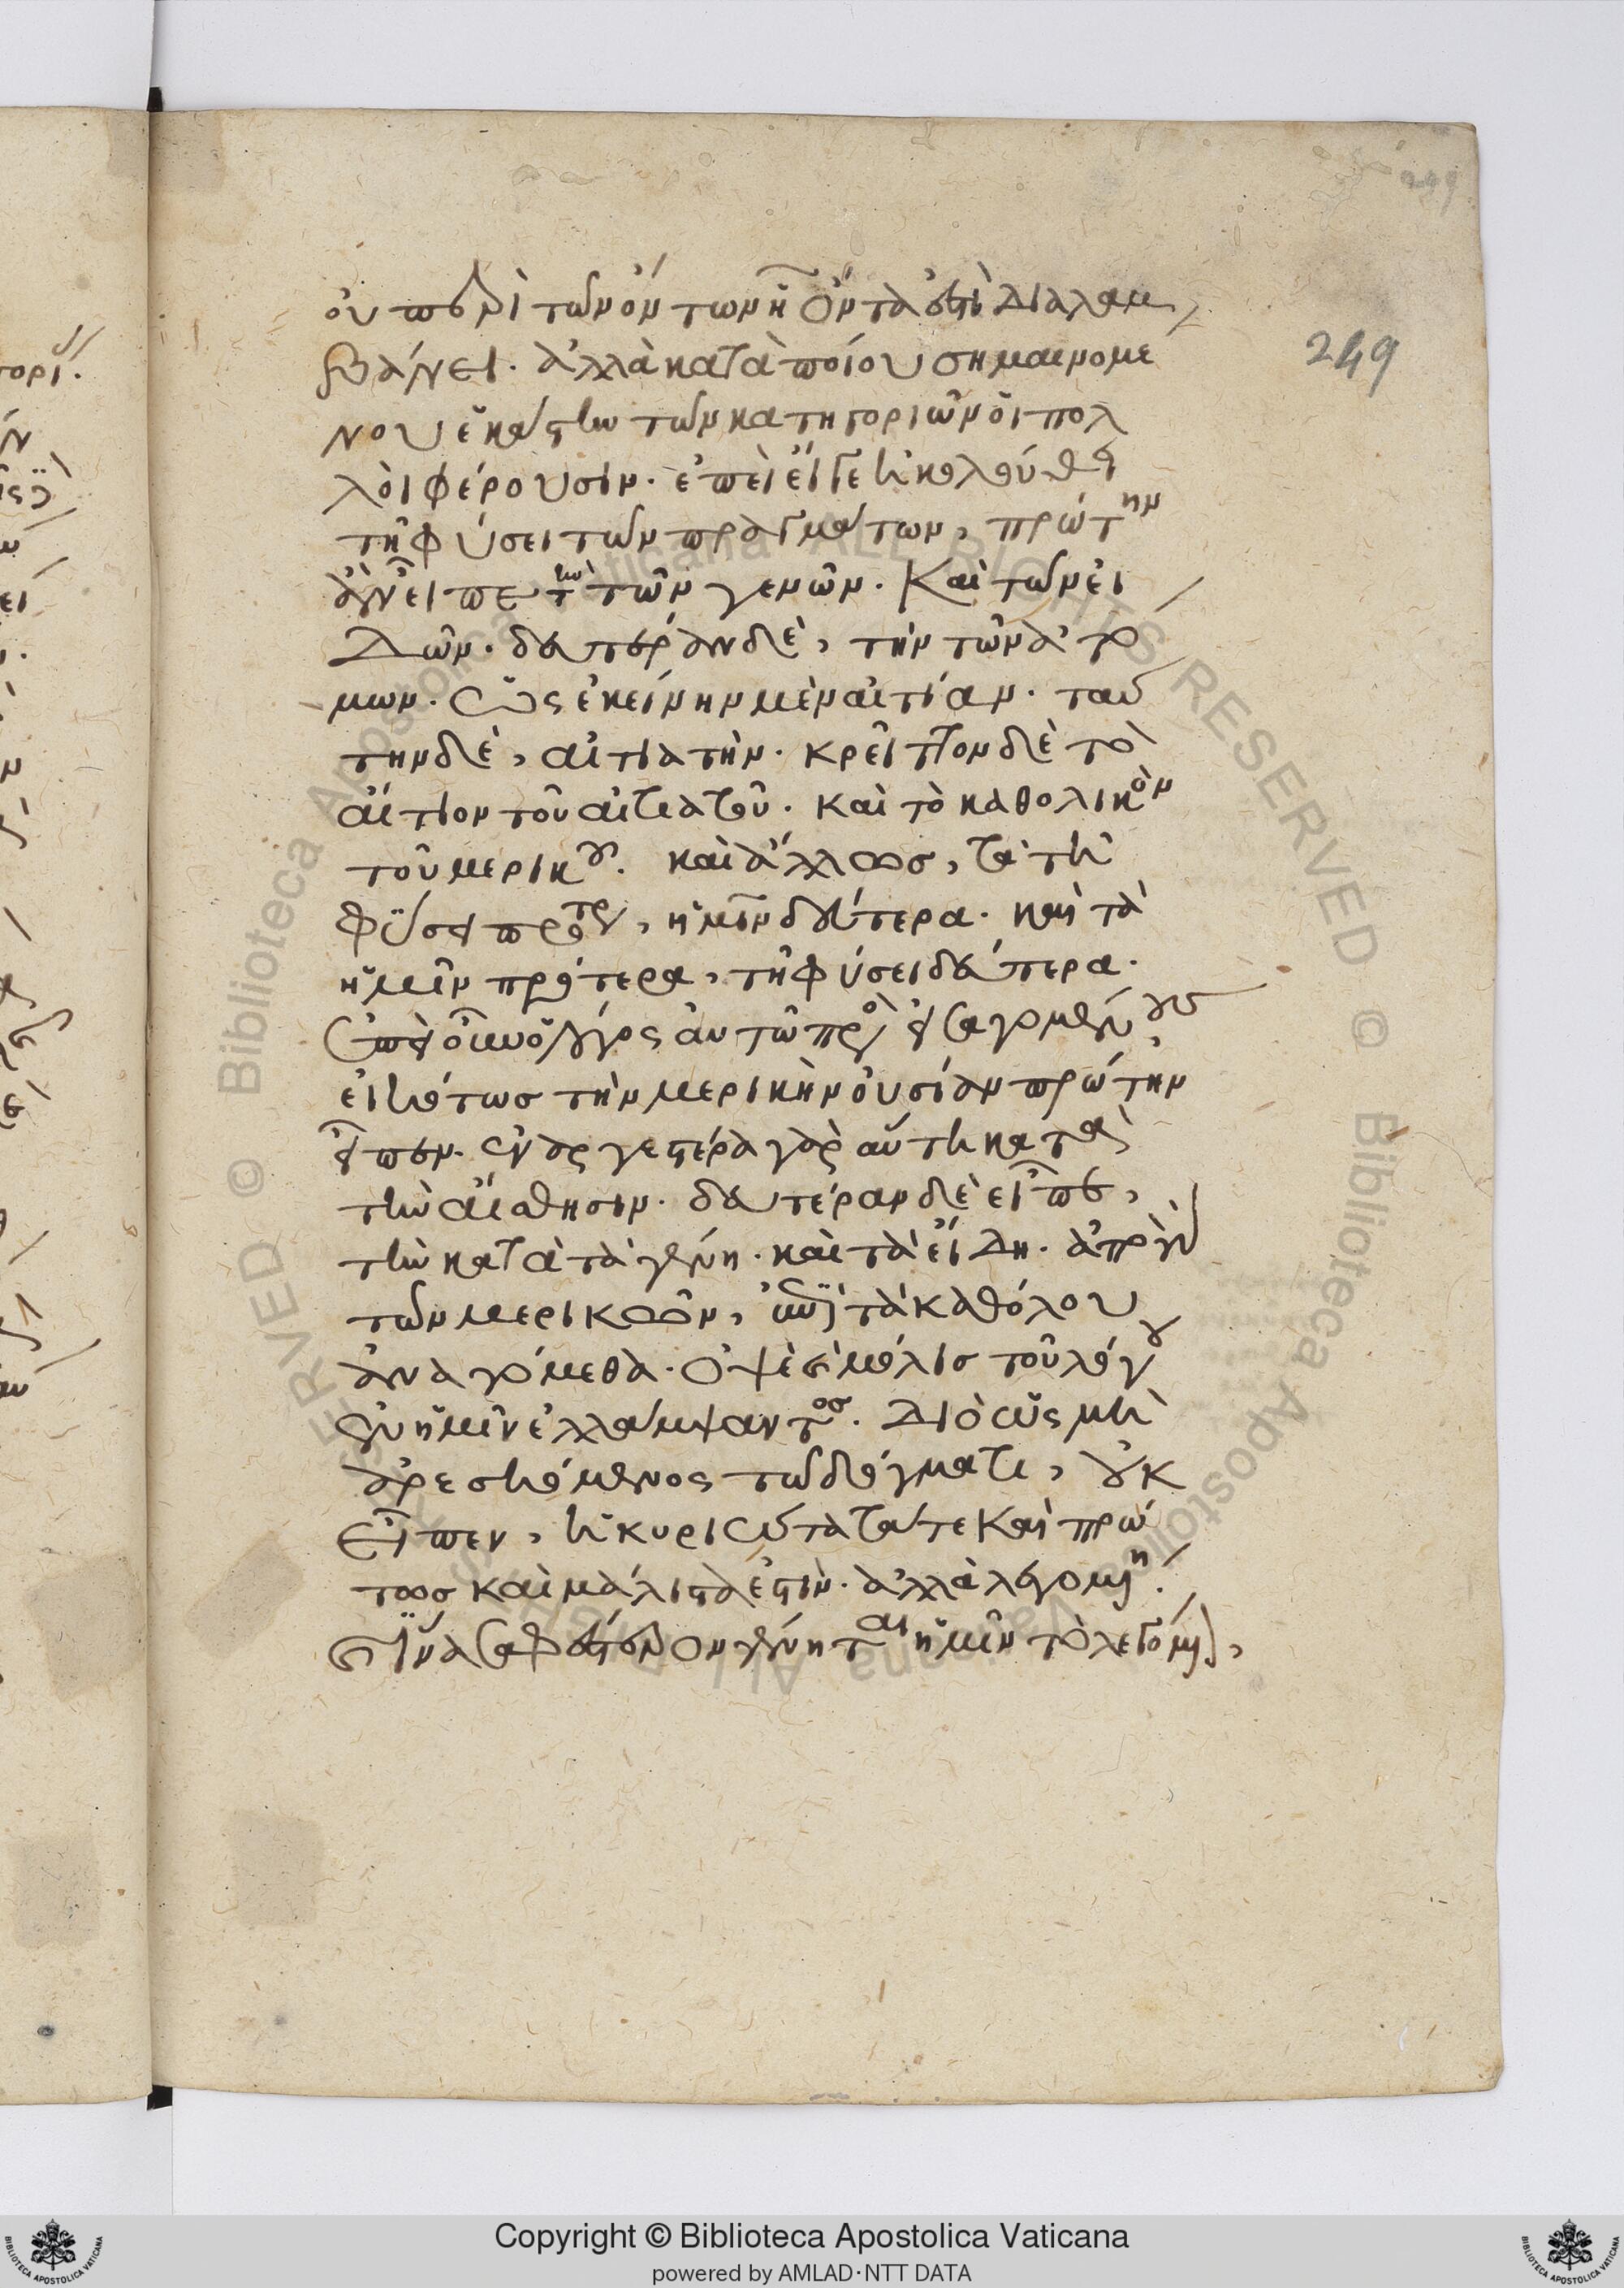 οὐ περὶ τῶν ὄντων ἧ ὄντα ἐστὶ διαλαμ
βάνει. ἀλλὰ κατὰ ποίου σημαινομέ
νου ἑκάστην τῶν κατηγοριῶν οἱ πολ
λοὶ φέρουσιν. ἐπεὶ εἴγε ἠκολούθει
τῆ φύσει τῶν πραγμάτων, πρώτην
ἂν εἶπε τὴν τῶν γενῶν. καὶ τῶν εἰ
δῶν. δευτέραν δὲ, τὴν τῶν ἀτό
μων. ὡς ἐκείνην μὲν αἰτίαν. ταύ
την δὲ, αἰτιατήν. κρεῖττον δὲ τὸ
αἴτιον τοῦ αἰτιατοῦ. καὶ τὸ καθολικὸν
τοῦ μερικοῦ. καὶ ἄλλως, τὰ τῆ
φύσει πρότερα, ἡμῖν δεύτερα. καὶ τὰ
ἡμῖν πρότερα, τῆ φύσει δεύτερα.
ἐπεὶ οὖν ὁ λόγος αὐτῶ πρὸς εἰσαγομένους,
εἰκότως τὴν μερικὴν οὐσίαν πρώτην
εἶπεν. ἐναργεστέρα γὰρ αὕτη κατὰ
τὴν αἴσθησιν. δευτέραν δὲ εἶπε,
τὴν κατὰ τὰ γένη. καὶ τὰ εἴδη. ἀπὸ γὰρ
τῶν μερικῶν, ἐπὶ τὰ καθόλου
ἀναγόμεθα. ὀψὲ καὶ μόλις τοῦ λόγου
ἐν ἡμῖν ἐλλάμψαντος. διὸ ὡς μὴ
ἀρεσκόμενος τῶ δόγματι, οὐκ
εἶπεν, ἡ κυριώτατά τε καὶ πρώ
τως καὶ μάλιστα ἐστὶν. ἀλλὰ λεγομένη.
καὶ ἵνα σαφέστερον γένηται ἡμῖν τὸ λεγόμενον,
249
Copyright © Biblioteca Apostolica Vaticana
powered by AMLAD·NTT DATA